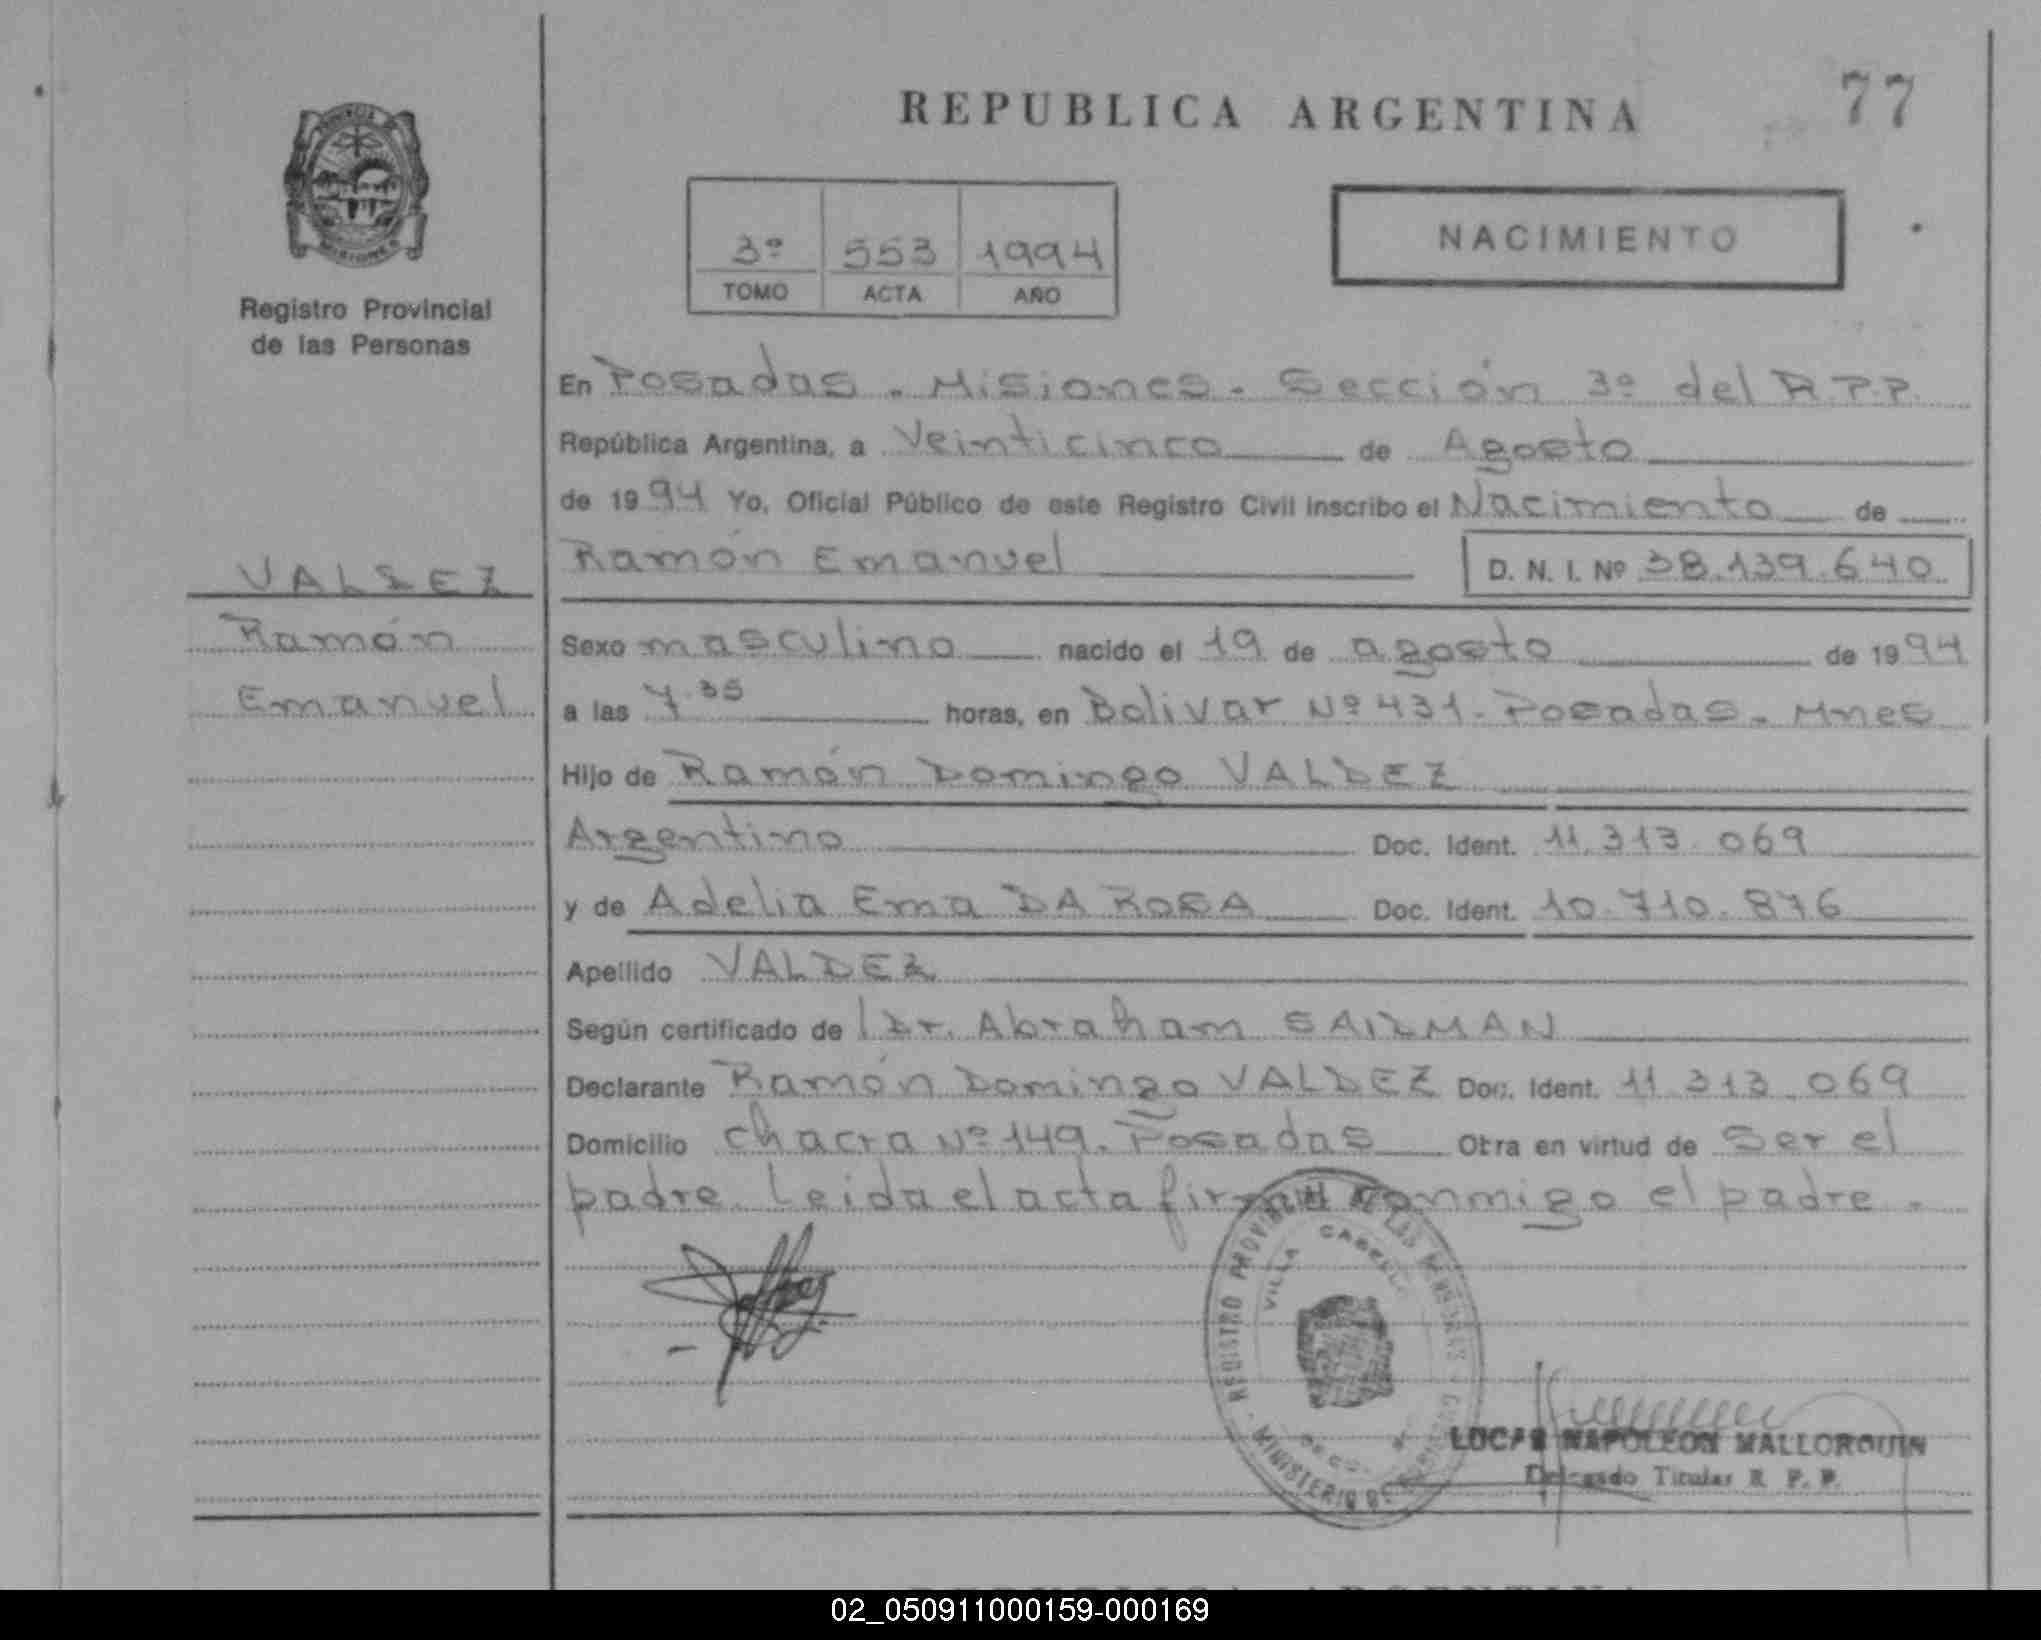 REPUBLICA ARGENTINA
77
PROVINCIA
MISIONES
Registro Provincial
de las Personas
3º 553 1994
TOMO ACTA AÑO
NACIMIENTO
En Posadas - Misiones - Sección 3º del R.P.P.
República Argentina, a Veinticinco de Agosto
de 1994 Yo, Oficial Público de este Registro Civil inscribo el Nacimiento de
Ramón Emanuel D. N. I. Nº 38.139.640
VALDEZ
Ramón
Emanuel
Sexo masculino nacido el 19 de agosto de 1994
a las 7.35 horas, en Bolivar Nº 431 - Posadas - Mnes
Hijo de Ramón Domingo VALDEZ
Argentino Doc. Ident. 11.313.069
y de Adelia Ema DA ROSA Doc. Ident. 10.710.876
Apellido VALDEZ
Según certificado de Dr. Abraham SAIZMAN
Declarante Ramón Domingo VALDEZ Doc. Ident. 11.313.069
Domicilio Chacra Nº 149. Posadas Otra en virtud de Ser el
padre. Leida el acta firma conmigo el padre.
REGISTRO PROVINCIAL DE LAS PERSONAS
VILLA CABELLO
MINISTERIO DE
LUCAS NAPOLEON MALLORQUIN
Delegado Titular R. P. P.
REPUBLICA ARGENTINA
02_050911000159-000169